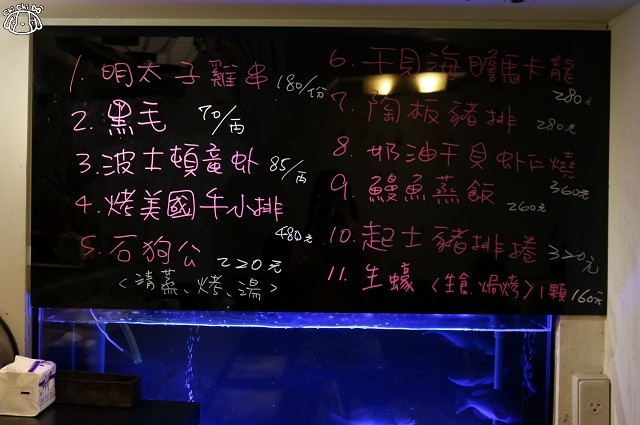 1. 明太子雞串 180/份
2. 黑毛 70/両
3. 波士頓龍虾 85/両
4. 烤美國牛小排 480元
5. 石狗公 220元
<清蒸、烤、湯>
6. 干貝海膽馬卡龍 280元
7. 陶板豬排 280元
8. 奶油干貝虾仁燒 360元
9. 鰻魚蒸飯 260元
10. 起士豬排捲 320元
11. 生蠔 <生食.焗烤> 1顆 160元